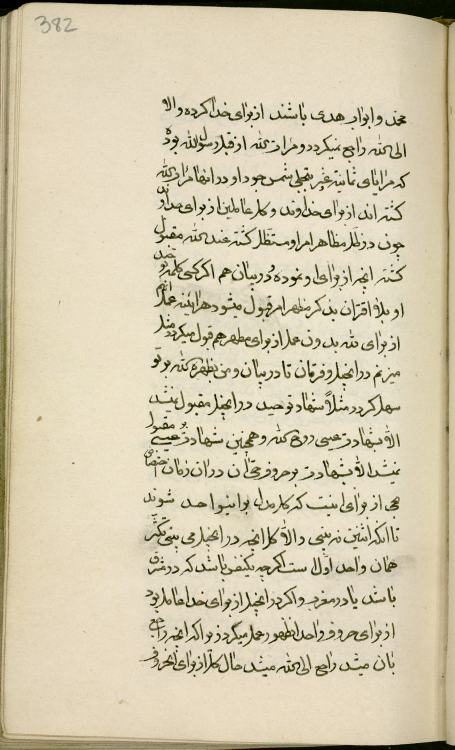 382
محمد و ابواب هدی باشند از برای خدا کرده والا
الی الله راجع نمیگردد و هزار نفر لله از قبل رسول الله بوده
که مرایای ثمانیه غیر تجلی شمس جود او در آنها
گشته اند از برای خداوند و کل عاملین از برای خداوند
چون در ظل مظاهر امر او مستظل گشته عند الله مقبول
گشته آنچه از برای او نموده و در بیان هم اگر کسی کلمه توحید
او بلا اقتران بذکر مظهر امر قبول میشود هر آینه عمل آنهم
از برای لله بدون عمل از برای مظهر هم قبول میگردد مثل
میزنم در انجیل و فرقان تا در بیان و من یظهره الله بر تو
سهل گردد مثلا شهادت توحید در انجیل مقبول نیشد
الا بشهادت عیسی روح الله و همچنین شهادت بر عیسی مقبول
نمیشد الا بشهادت بر حروف حی آن در آن زمان
حی از برای اینست که کل مدل بر آن واحد شوند
تا آنکه اثنین نه بینی والا کل آنچه در انجیل می بینی تکثر
همان واحد اول است اگر چه یک نفس باشد که در مشرق
باشد یا در مغرب و اگر در انجیل از برای خدا عامل بود
از برای حروف واحد آن ظهور عمل میگردد زیرا که آنچه راجع
بآن میشد راجع الی الله میشد حال کل از برای آن حروف